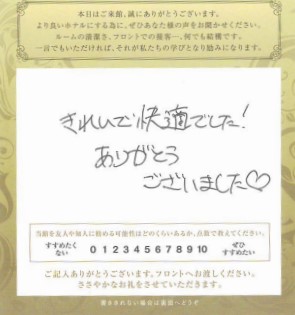 本日はご来館、誠にありがとうございます。
より良いホテルにする為に、ぜひあなた様の声をお聞かせください。
ルームの清潔さ、フロントでの接客…、何でも結構です。
一言でもいただければ、それが私たちの学びとなり励みになります。
きれいで快適でした!
ありがとう
ございました♡
当館を友人や知人に勧める可能性はどのくらいあるか、点数で教えてください。
すすめたくない 0 1 2 3 4 5 6 7 8 9 10 ぜひすすめたい
ご記入ありがとうございます。フロントへお渡しください。
ささやかなお礼をさせていただきます。
書ききれない場合は裏面へどうぞ